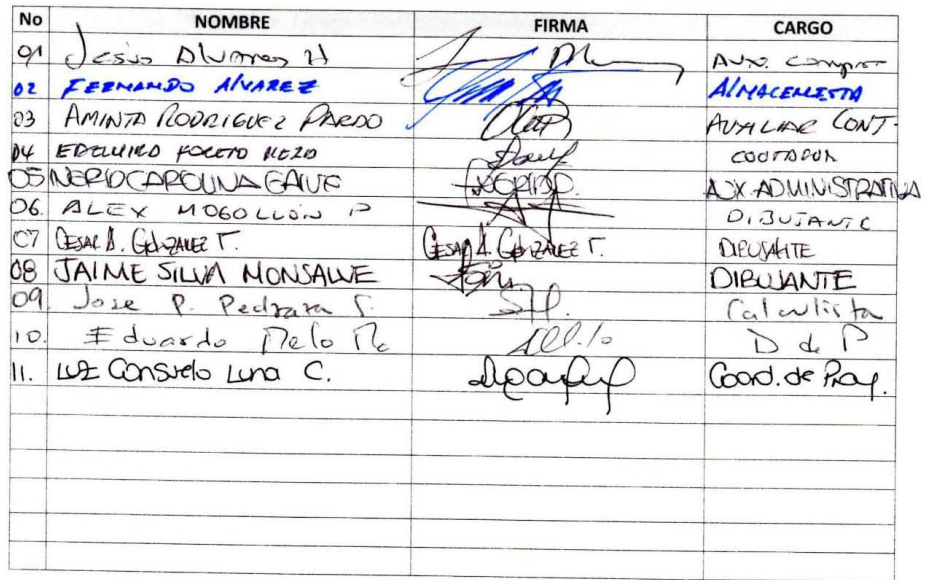 No NOMBRE FIRMA CARGO
01 Jesus Alvarez H Aux. compras
02 FERNANDO AlVAREZ AlMACENISTA
03 AMINTA RODRIGUEZ PARDO AUXILIAR CONT.
04
05 CAROLINA AUX. ADMINISTRATIVA
06. ALEX MOGOLLON P DIBUJANTE
07 CESAR A. GONZALEZ T. CESAR A. GONZALEZ T. DIBUJANTE
08 JAIME SILVA MONSALVE DIBUJANTE
09. Jose P. Pedraza S. Calculista
10. Eduardo Melo D de P
11. LUZ Consuelo Luna C. Coord. de Proy.